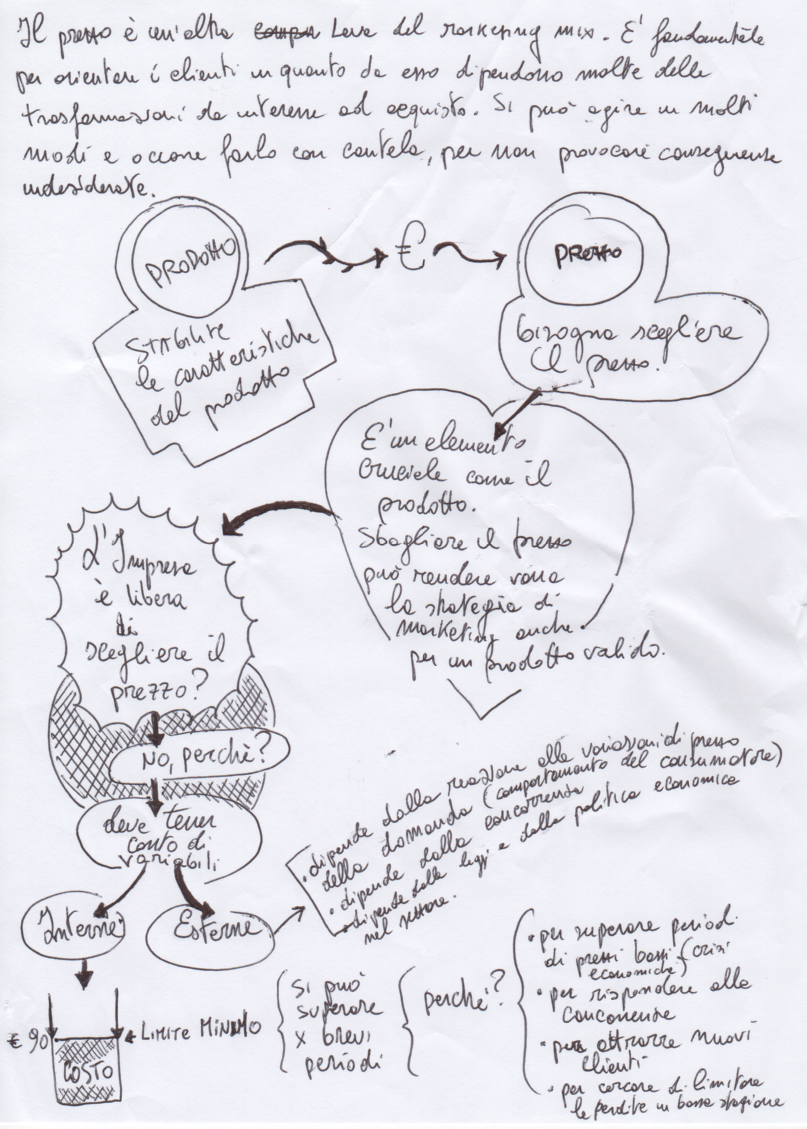 Il prezzo è un'altra leva del marketing mix. E' fondamentale
per orientare i clienti in quanto da esso dipendono molte delle
trasformazioni da interesse ad acquisto. Si può agire in molti
modi e occorre farlo con cautela, per non provocare conseguenze
indesiderate.
PRODOTTO
€
PREZZO
Stabilire
le caratteristiche
del prodotto
bisogna scegliere
il prezzo.
E' un elemento
cruciale come il
prodotto.
Sbagliare il prezzo
può rendere vana
la strategia di
marketing anche
per un prodotto valido.
L'Impresa
è libera
di
scegliere il
prezzo?
NO, perchè?
deve tener
conto di
variabili
Interne
Esterne
• dipende dalla reazione alle variazioni di prezzo
della domanda (comportamento del consumatore)
• dipende dalla concorrenza
• dipende dalle leggi e dalla politica economica
nel settore.
€ 90
COSTO
LIMITE MINIMO
si può
superare
x brevi
periodi
perchè?
• per superare periodi
di prezzi bassi (crisi
economiche)
• per rispondere alla
concorrenza
• per attrarre nuovi
clienti
• per cercare di limitare
le perdite in bassa stagione